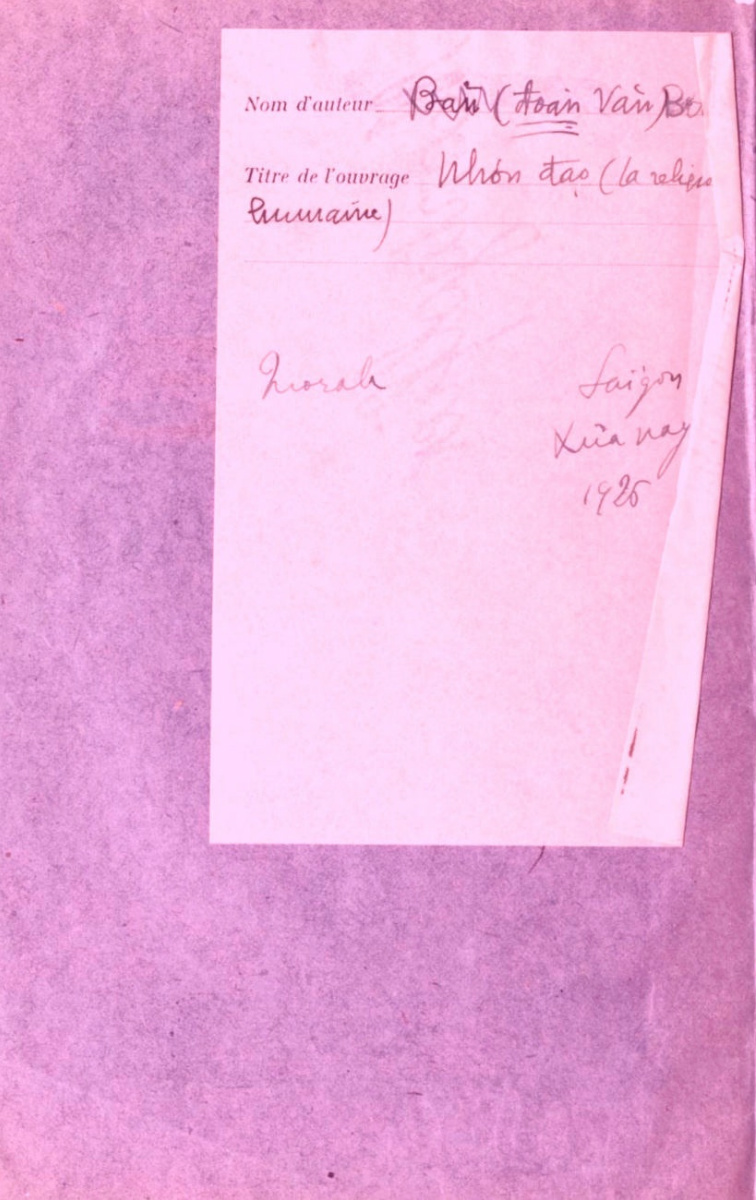 Nom d'auteur (Đoàn Văn)
Titre de l'ouvrage Nhơn đạo (la religio
humaine)
Morale Saigon
Xưa nay
1926